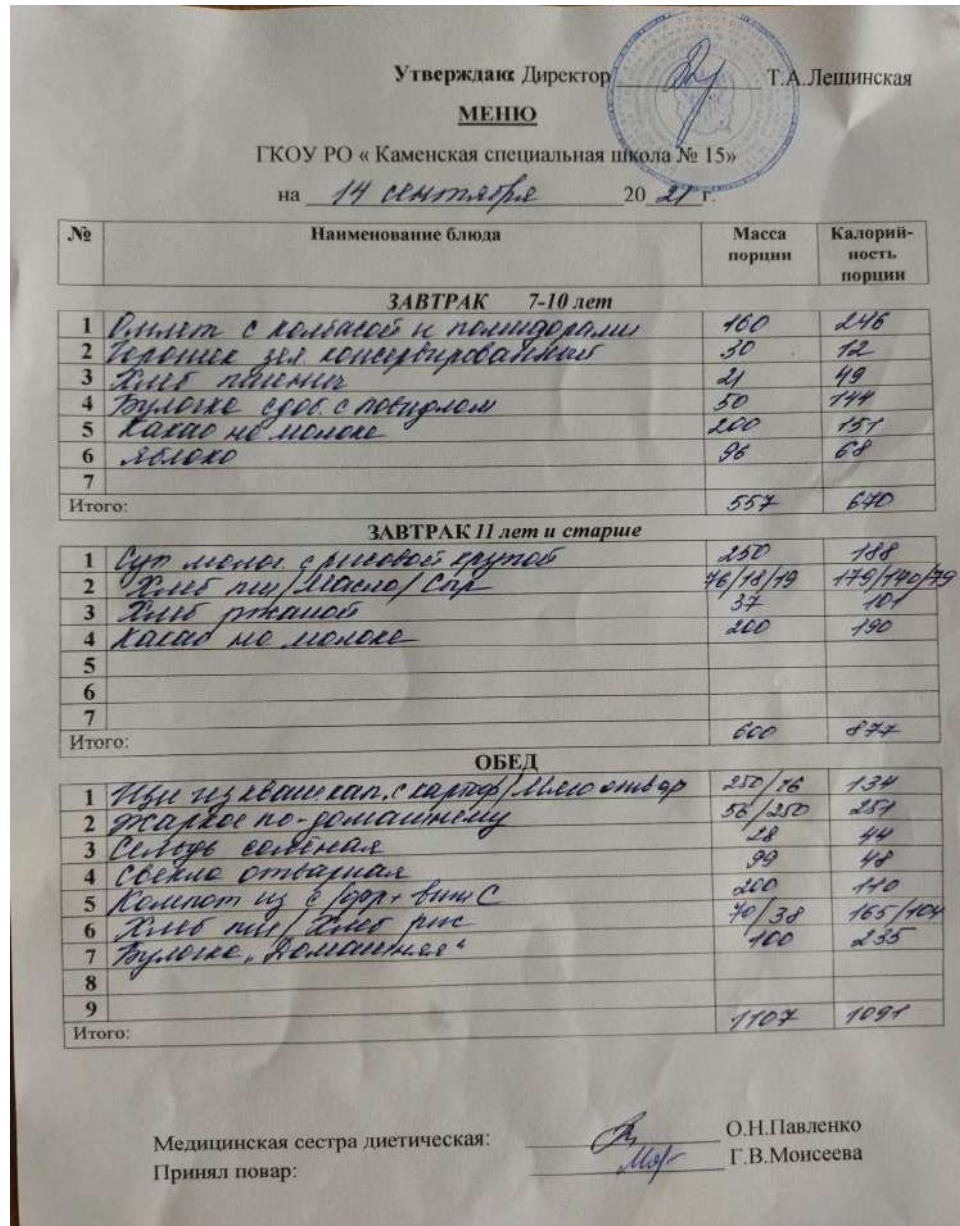 Утверждаю: Директор Т.А.Лещинская
МЕНЮ
ГКОУ РО « Каменская специальная школа № 15»
на 14 сентября 2021 г.
№ Наименование блюда Масса порции Калорий-ность порции
ЗАВТРАК 7-10 лет
1 Омлет с колбасой и помидорами 160 246
2 Горошек зел консервированный 30 12
3 Хлеб пшенич 21 49
4 Булочка сдоб. с повидлом 50 144
5 Какао на молоке 200 151
6 Яблоко 96 68
7
Итого: 557 670
ЗАВТРАК 11 лет и старше
1 Суп молоч. с рисовой крупой 250 188
2 Хлеб пш/Масло/Сыр 76/18/19 179/140/79
3 Хлеб ржаной 37 101
4 Какао на молоке 200 190
5
6
7
Итого: 600 877
ОБЕД
1 Щи из кваш.кап. с картоф/Мясо отвар 250/16 134
2 Жаркое по-домашнему 56/250 251
3 Сельдь солёная 28 44
4 Свекла отварная 99 48
5 Компот из с/фр+ вит С 200 110
6 Хлеб пш/Хлеб рж 70/38 165/104
7 Булочка „Домашняя“ 100 235
8
9
Итого: 1107 1091
Медицинская сестра диетическая: О.Н.Павленко
Принял повар: Г.В.Моисеева